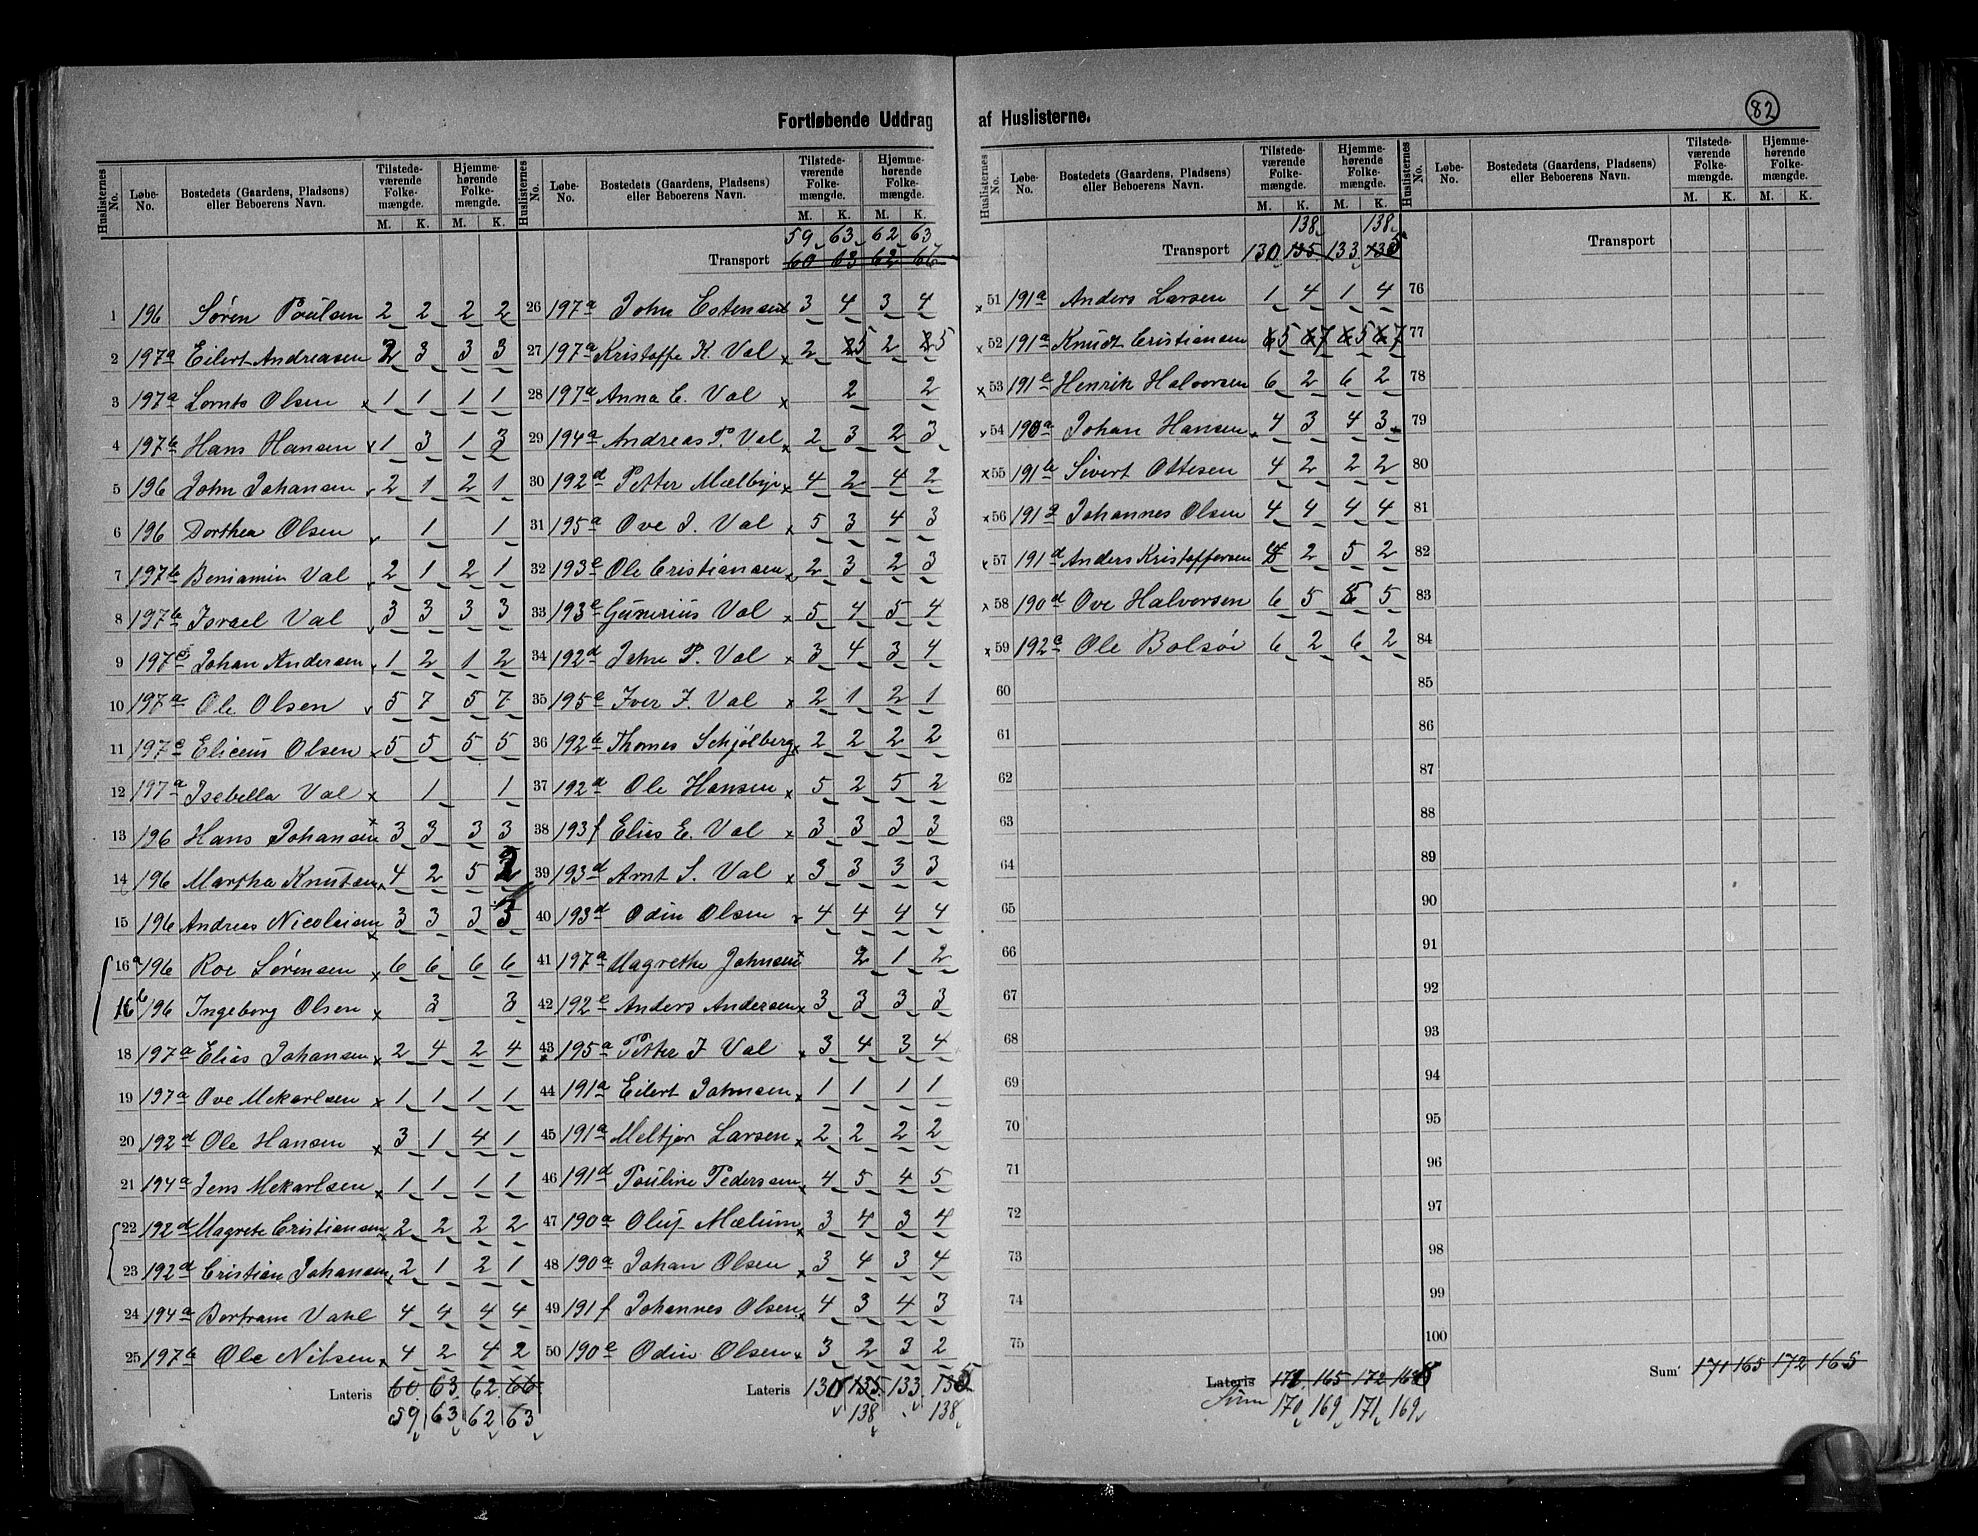 82
Fortløbende Uddrag af Huslisterne.
Huslisternes No. Løbe-No. Bostedets (Gaardens, Pladsens) eller Beboerens Navn. Tilstede-værende Folke-mængde. M. K. Hjemme-hørende Folke-mængde. M. K.
1 196 Søren Poulsen 2 2 2 2
2 197a Eilert Andreasen 2 3 3 3
3 197a Lornts Olsen x 1 1 1 1
4 197b Hans Hansen x 1 3 1 3
5 196 John Johansen 2 1 2 1
6 196 Dorthea Olsen 1 1
7 197b Beniamin Val 2 1 2 1
8 197b Israel Val 3 3 3 3
9 197 Johan Andersen 1 2 1 2
10 197a Ole Olsen 5 7 5 7
11 197e Eliceus Olsen x 5 5 5 5
12 197a Isebella Val x 1 1
13 196 Hans Johansen x 3 3 3 3
14 196 Martha Knutsen 4 2 5 2
15 196 Andreas Nicolaisen x 3 3 3 3
16a 196 Roe Sørensen x 6 6 6 6
16b 196 Ingeborg Olsen x 3 3
18 197a Elias Johansen x 2 4 2 4
19 197a Ove Mekarlsen x 1 1 1 1
20 192d Ole Hansen x 3 1 4 1
21 194a Jens Mekarlsen x 1 1 1 1
22 192d Magrete Cristiansen 2 2 2 2
23 192d Cristian Johansen 2 1 2 1
24 194a Bertram Vahl 4 4 4 4
25 197b Ole Nilsen x 4 2 4 2
Lateris 60 63 62 66
59 63 62 63
Huslisternes No. Løbe-No. Bostedets (Gaardens, Pladsens) eller Beboerens Navn. Tilstede-værende Folke-mængde. M. K. Hjemme-hørende Folke-mængde. M. K.
59 63 62 63
Transport 60 63 62 66
26 197a John Estensen x 3 4 3 4
27 197a Kristoffe K. Val x 2 5 2 5
28 197a Anna E. Val x 2 2
29 194a Andreas P. Val x 2 3 2 3
30 192d Petter Mælbye x 4 2 4 2
31 195a Ove J. Val x 5 3 4 3
32 193e Ole Cristiansen x 2 3 2 3
33 193e Gunerius Val x 5 4 5 4
34 192d P. Val x 3 4 3 4
35 195e Iver J. Val x 2 1 2 1
36 192b Thomes Schjølberg x 2 2 2 2
37 192d Ole Hansen x 5 2 5 2
38 193f Elias E. Val x 3 3 3 3
39 193d Arnt S. Val x 3 3 3 3
40 193d Odin Olsen x 4 4 4 4
41 197a Magrethe Johnsen x 2 1 2
42 192e Anders Andersen x 3 3 3 3
43 195a Petter J Val x 3 4 3 4
44 191a Eilert Johnsen x 1 1 1 1
45 191a Meltjor Larsen x 2 2 2 2
46 191d Pouline Pederssen x 4 5 4 5
47 190a Oluf Mælum x 3 4 3 4
48 190a Johan Olsen x 3 4 3 4
49 191f Johannes Olsen x 4 3 4 3
50 190e Odin Olsen x 3 2 3 2
Lateris 130 135 133 135
138 138
Huslisternes No. Løbe-No. Bostedets (Gaardens, Pladsens) eller Beboerens Navn. Tilstede-værende Folke-mængde. M. K. Hjemme-hørende Folke-mængde. M. K.
138 138
Transport 130 135 133 135
x 51 191a Anders Larsen 1 4 1 4
x 52 191a Knudt Cristiansen 5 7 5 7
x 53 191e Henrik Halvorsen 6 2 6 2
x 54 190a Johan Hansen 4 3 4 3
x 55 191b Sivert Ottesen 4 2 2 2
x 56 191 Johannes Olsen 4 4 4 4
x 57 191d Anders Kristoffersen 4 2 5 2
x 58 190d Ove Halvorsen 6 5 5 5
x 59 192a Ole Bolsøi 6 2 6 2
60
61
62
63
64
65
66
67
68
69
70
71
72
73
74
75
Lateris 171 165 172 165
Sum 170 169 171 169
Huslisternes No. Løbe-No. Bostedets (Gaardens, Pladsens) eller Beboerens Navn. Tilstede-værende Folke-mængde. M. K. Hjemme-hørende Folke-mængde. M. K.
Transport
76
77
78
79
80
81
82
83
84
85
86
87
88
89
90
91
92
93
94
95
96
97
98
99
100
Sum 171 165 172 165